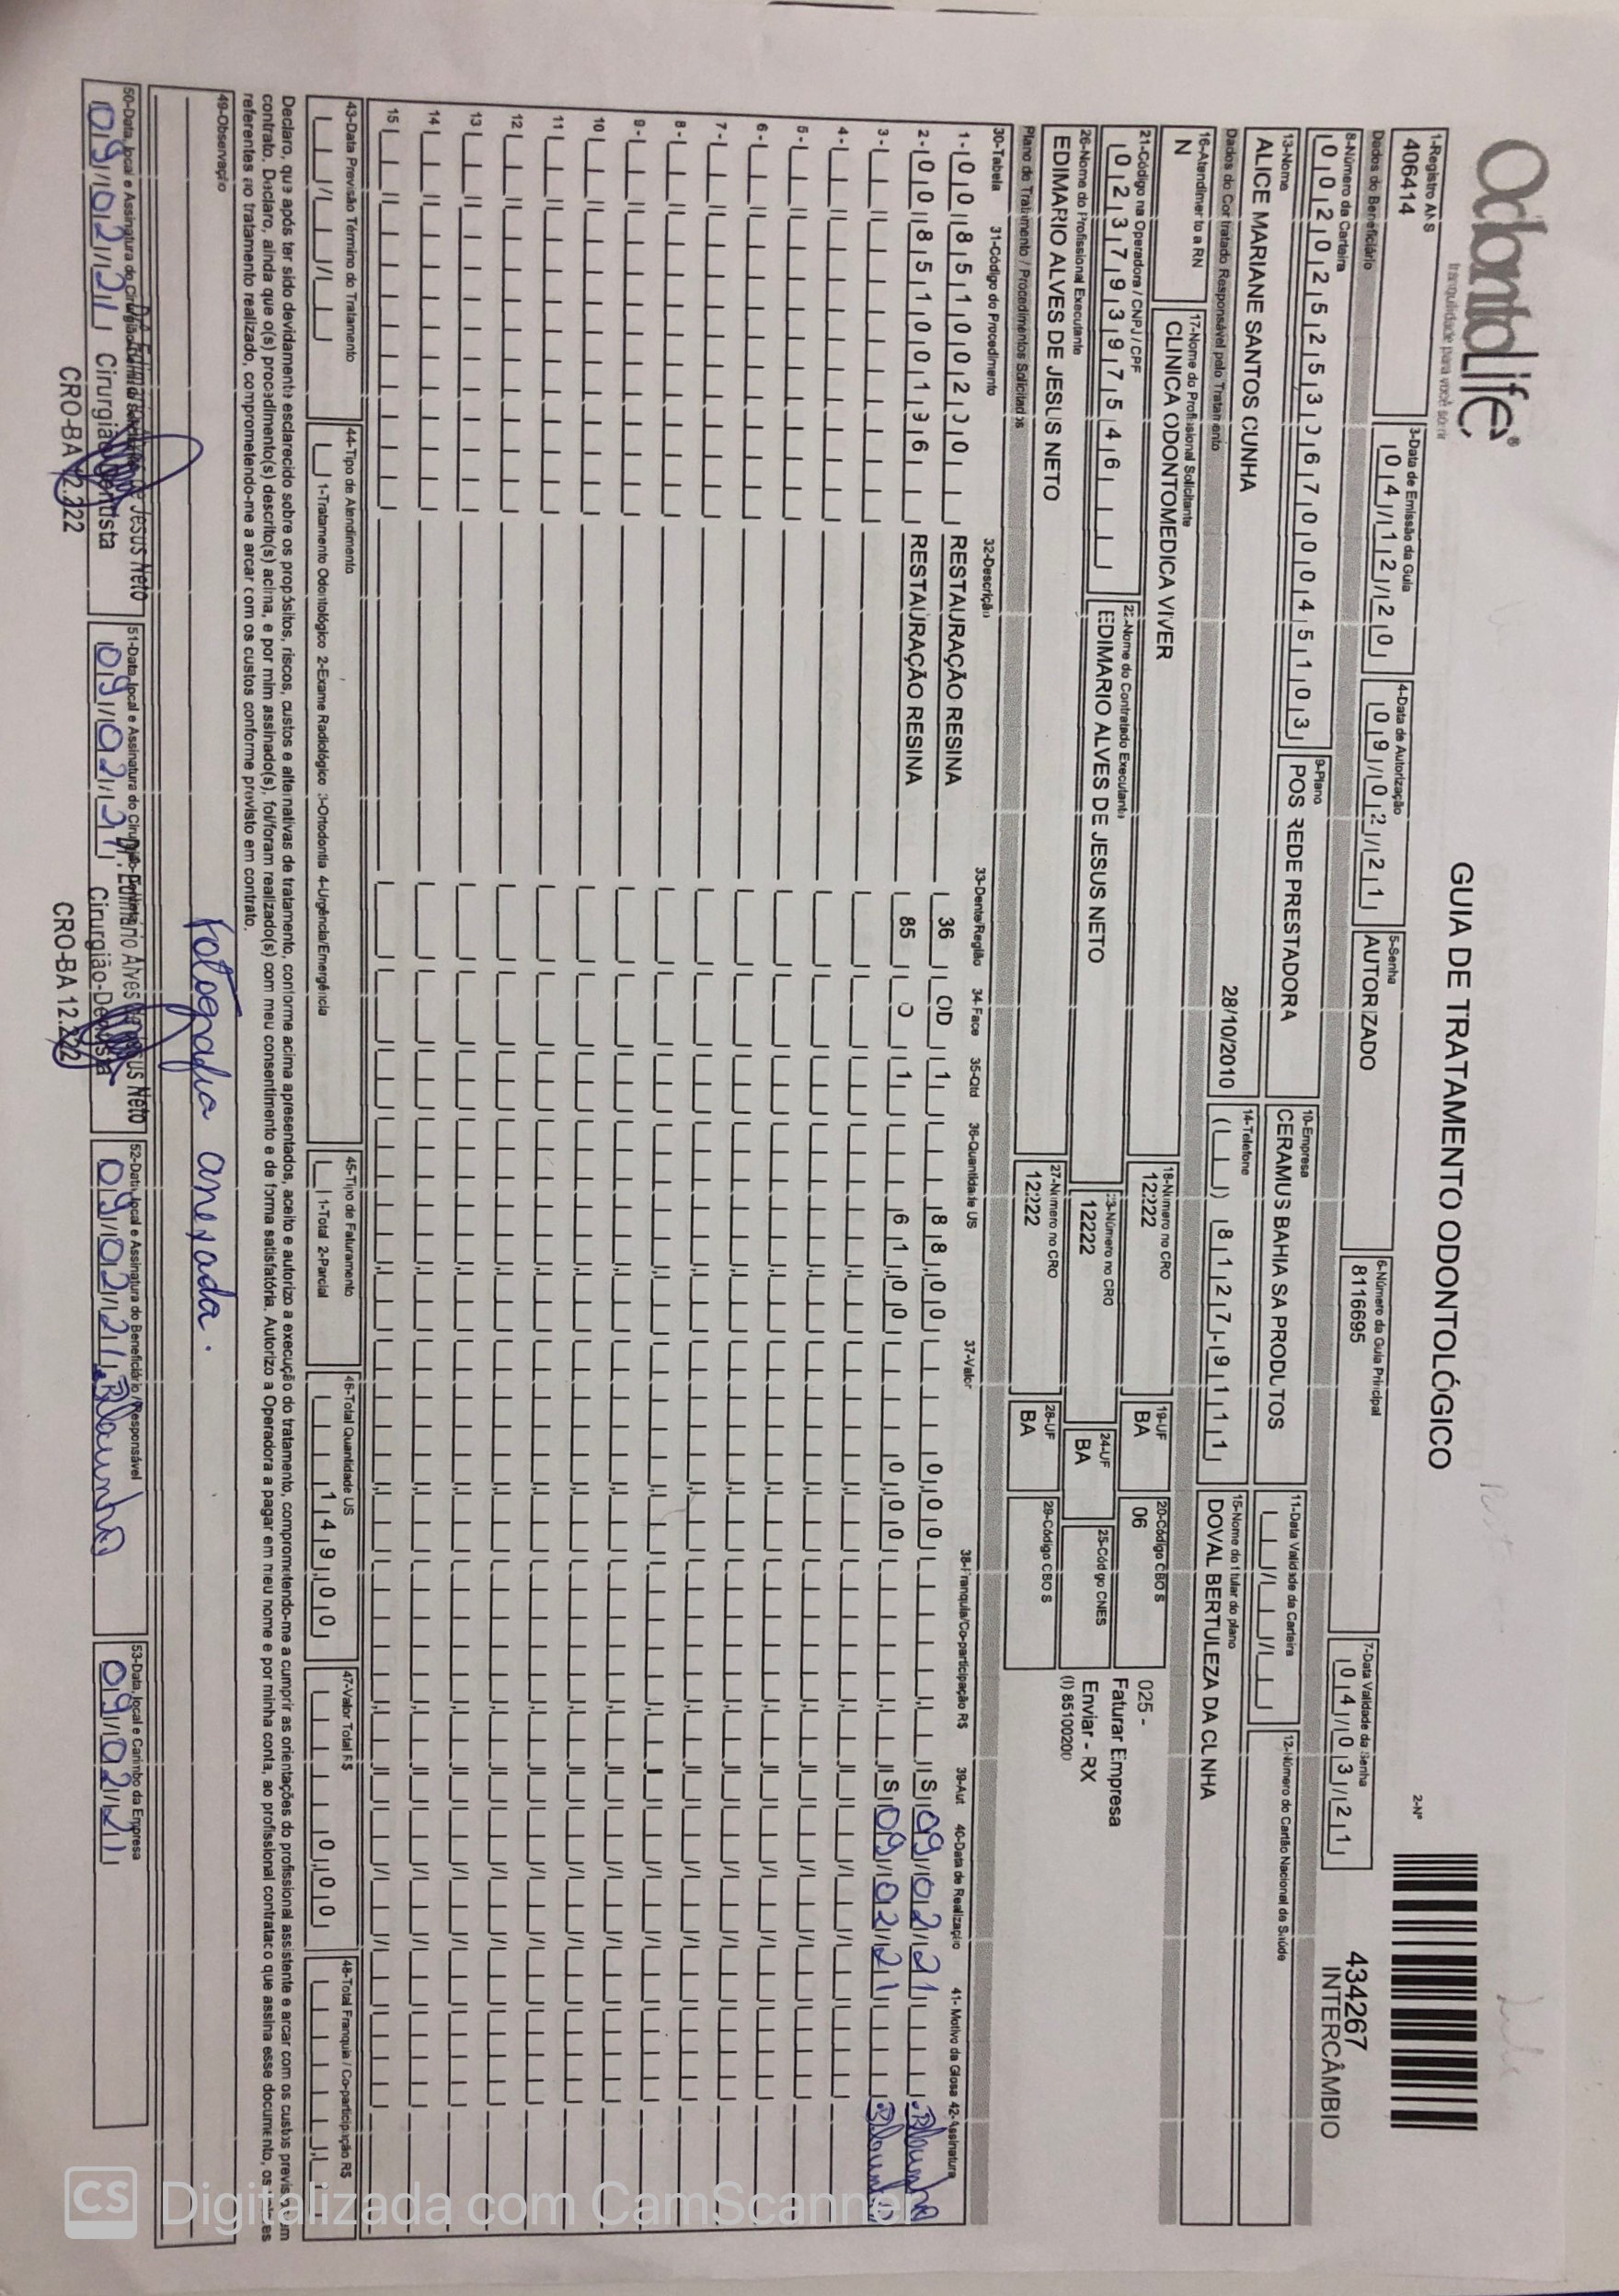 OdontoLife®
tranquilidade para você sorrir
GUIA DE TRATAMENTO ODONTOLÓGICO
2-Nº
434267
INTERCÂMBIO
1-Registro ANS
406414
3-Data de Emissão da Guia
04/12/20
4-Data de Autorização
09/02/21
5-Senha
AUTORIZADO
6-Número da Guia Principal
8116695
7-Data Validade da Senha
04/03/21
Dados do Beneficiário
8-Número da Carteira
00202525306700045103
9-Plano
POS REDE PRESTADORA
10-Empresa
CERAMUS BAHIA SA PRODUTOS
11-Data Validade da Carteira
12-Número do Cartão Nacional de Saúde
13-Nome
ALICE MARIANE SANTOS CUNHA
28/10/2010
14-Telefone
( ) 8127-9111
15-Nome do titular do plano
DOVAL BERTULEZA DA CUNHA
Dados do Contratado Responsável pelo Tratamento
16-Atendimento a RN
N
17-Nome do Profissional Solicitante
CLINICA ODONTOMEDICA VIVER
18-Número no CRO
12222
19-UF
BA
20-Código CBO S
06
025 -
Faturar Empresa
Enviar - RX
(I) 85100200
21-Código na Operadora / CNPJ / CPF
02379397546
22-Nome do Contratado Executante
EDIMARIO ALVES DE JESUS NETO
23-Número no CRO
12222
24-UF
BA
25-Código CNES
26-Nome do Profissional Executante
EDIMARIO ALVES DE JESUS NETO
27-Número no CRO
12222
28-UF
BA
29-Código CBO S
Plano de Tratamento / Procedimentos Solicitados
30-Tabela 31-Código do Procedimento 32-Descrição 33-Dente/Região 34-Face 35-Qtd 36-Quantidade US 37-Valor 38-Franquia/Co-participação R$ 39-Aut 40-Data de Realização 41- Motivo da Glosa 42-Assinatura
1- 00 85100200 RESTAURAÇÃO RESINA 36 OD 1 88,00 0,00 S 09/02/21
2- 00 85100196 RESTAURAÇÃO RESINA 85 O 1 61,00 0,00 S 09/02/21
3-
4-
5-
6-
7-
8-
9-
10
11
12
13
14
15
43-Data Previsão Término do Tratamento
44-Tipo de Atendimento
1-Tratamento Odontológico 2-Exame Radiológico 3-Ortodontia 4-Urgência/Emergência
45-Tipo de Faturamento
1-Total 2-Parcial
46-Total Quantidade US
149,00
47-Valor Total R$
0,00
48-Total Franquia / Co-participação R$
Declaro, que após ter sido devidamente esclarecido sobre os propósitos, riscos, custos e alternativas de tratamento, conforme acima apresentados, aceito e autorizo a execução do tratamento, comprometendo-me a cumprir as orientações do profissional assistente e arcar com os custos previstos em
contrato. Declaro, ainda que o(s) procedimento(s) descrito(s) acima, e por mim assinado(s), foi/foram realizado(s) com meu consentimento e de forma satisfatória. Autorizo a Operadora a pagar em meu nome e por minha conta, ao profissional contratado que assina esse documento, os valores
referentes ao tratamento realizado, comprometendo-me a arcar com os custos conforme previsto em contrato.
49-Observação
Fotografia anexada.
50-Data, local e Assinatura do Cirurgião-Dentista Solicitante
09/02/21
Cirurgião-Dentista
CRO-BA 12.222
51-Data, local e Assinatura do Cirurgião-Dentista
09/02/21
Dr. Edimário Alves de Jesus Neto
Cirurgião-Dentista
CRO-BA 12.222
52-Data, local e Assinatura do Beneficiário/Responsável
09/02/21
53-Data, local e Carimbo da Empresa
09/02/21
CS Digitalizada com CamScanner